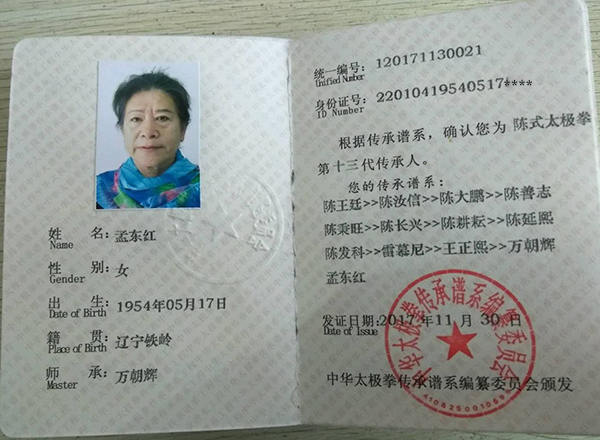 姓 名：孟东红
Name
性 别：女
Gender
出 生：1954年05月17日
Date of Birth
籍 贯：辽宁铁岭
Place of Birth
师 承：万朝辉
Master
统一编号：120171130021
Unified Number
身份证号：22010419540517****
ID Number
根据传承谱系，确认您为 陈式太极拳
第十三代传承人。
您的传承谱系：
陈王廷>>陈汝信>>陈大鹏>>陈善志
陈秉旺>>陈长兴>>陈耕耘>>陈延熙
陈发科>>雷慕尼>>王正熙>>万朝辉
孟东红
发证日期：2017年11月30日
Date of Issue
中华太极拳传承谱系编纂委员会颁发
中华太极拳传承谱系编纂委员会